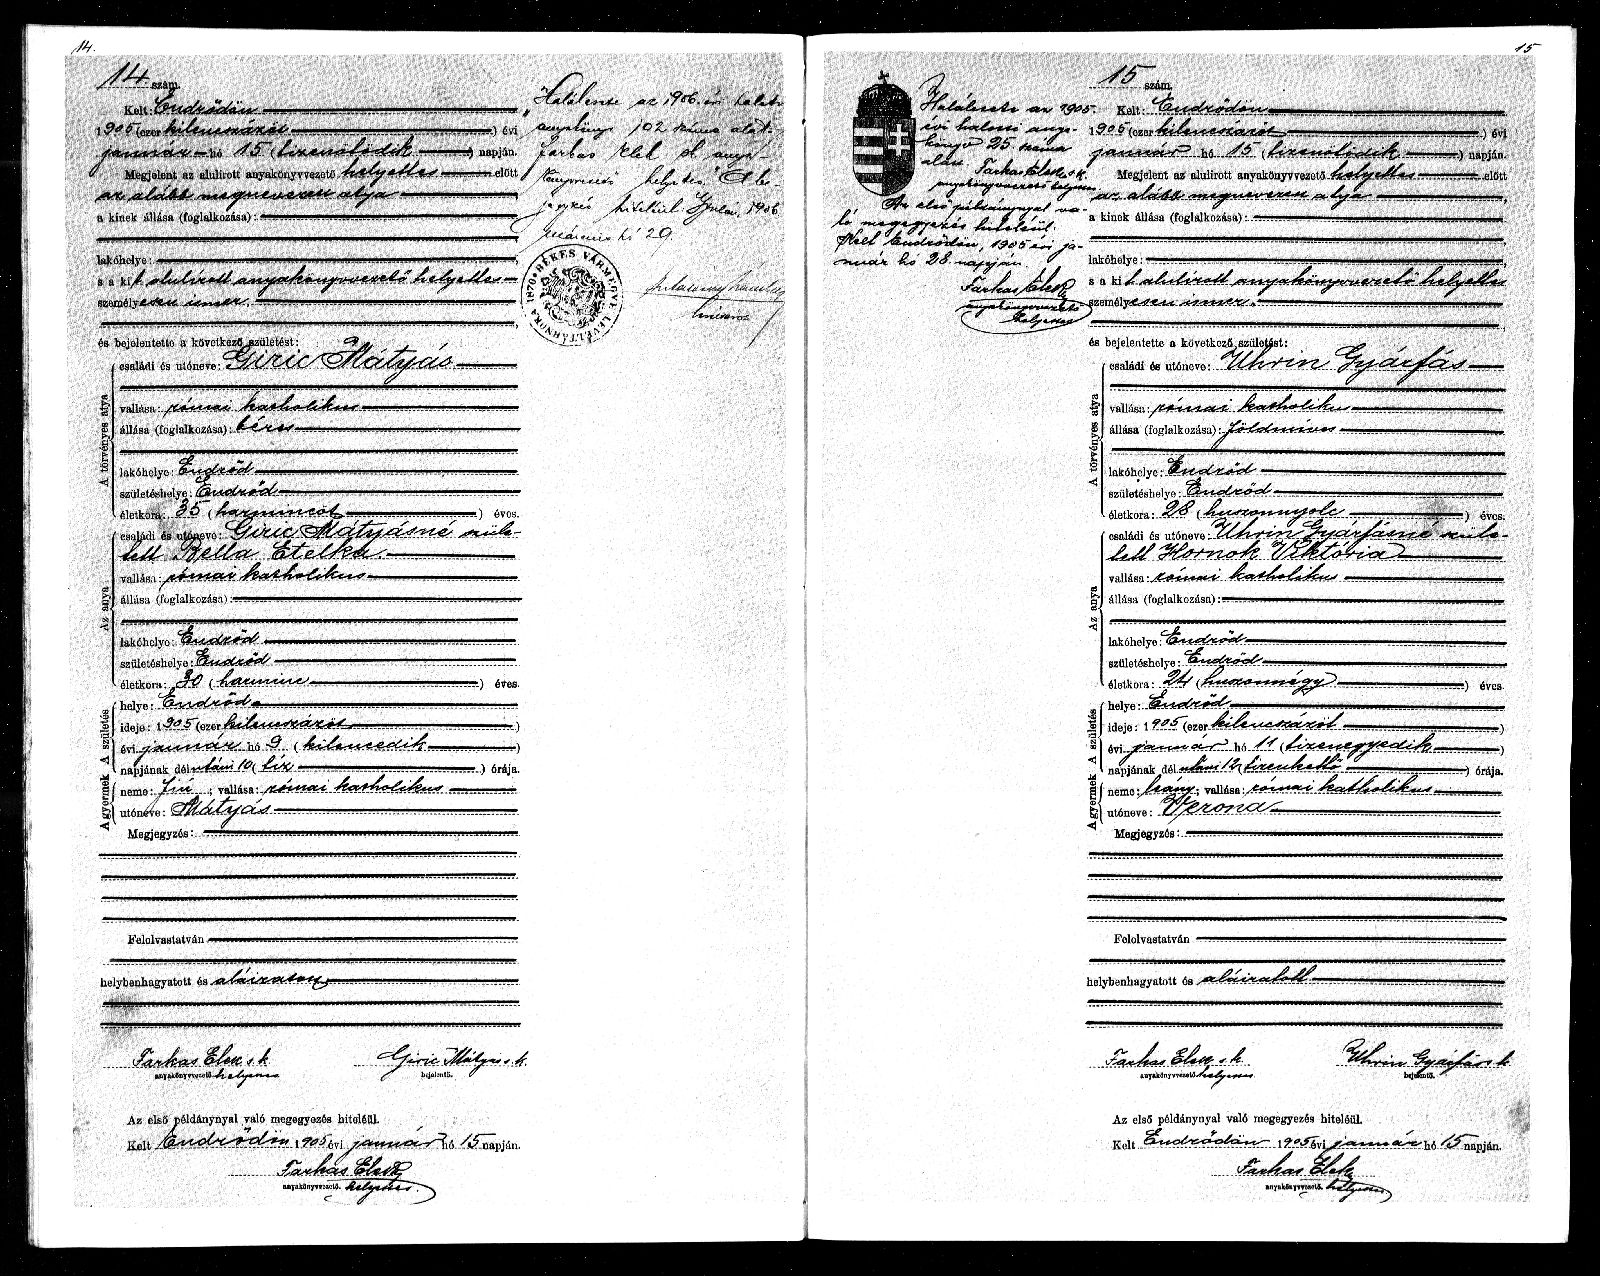 14.
14 szám.
Kelt: Endrődön
1905 (ezer kilencszázöt) évi
január hó 15 (tizenötödik) napján.
Megjelent az alulirott anyakönyvvezető helyettes előtt
az alább megnevezett atya
a kinek állása (foglalkozása):
lakóhelye:
s a kit alulirott anyakönyvvezető helyettes
személyesen ismer.
és bejelentette a következő születést:
A törvényes atya
családi és utóneve: Giric Mátyás
vallása: római katholikus
állása (foglalkozása): béres
lakóhelye: Endrőd
születéshelye: Endrőd
életkora: 35 (harmincöt) éves.
Az anya
családi és utóneve: Giric Mátyásné szüle-
tett Bella Etelka.
vallása: római katholikus
állása (foglalkozása):
lakóhelye: Endrőd
születéshelye: Endrőd
életkora: 30 (harminc) éves.
A születés
helye: Endrőd
ideje: 1905 (ezer kilencszázöt)
évi január hó 9 (kilencedik)
napjának dél utáni 10 (tiz) órája.
A gyermek
neme: fiú; vallása: római katholikus
utóneve: Mátyás
Megjegyzés:
Felolvastatván
helybenhagyatott és aláiratott
Farkas Elek s.k. Giric Mátyás s.k.
anyakönyvvezető helyettes bejelentő.
Az első példánynyal való megegyezés hiteléül.
Kelt Endrődön 1905 évi január hó 15 napján.
Farkas Elek
anyakönyvvezető. helyettes.
Halálesete az 1906. évi halotti
anyakönyv 102 száma alatt.
Farkas Elek sk. anya-
könyvvezető helyettes"
jegyzés hiteléül. Gyula, 1906
március hó 29.
BÉKES VÁRMEGYE LEVÉLTÁRNOKA 1870
15
15 szám.
Halálesete az 1905.
évi halotti anya-
könyv 25 száma
alatt. Farkas Elek s.k.
anyakönyvvezető helyettes
Az első példánynyal va-
ló megegyezés hiteléül.
Kelt Endrődön, 1905 évi ja-
nuár hó 28. napján.
Farkas Elek
anyakönyvvezető
helyettes
Kelt: Endrődön
1905 (ezer kilencszázöt) évi
január hó 15 (tizenötödik) napján.
Megjelent az alulirott anyakönyvvezető helyettes előtt
az alább megnevezett atya
a kinek állása (foglalkozása):
lakóhelye:
s a kit alulirott anyakönyvvezető helyettes
személyesen ismer.
és bejelentette a következő születést:
A törvényes atya
családi és utóneve: Uhrin Gyárfás
vallása: római katholikus
állása (foglalkozása): földmíves
lakóhelye: Endrőd
születéshelye: Endrőd
életkora: 28 (huszonnyolc) éves.
Az anya
családi és utóneve: Uhrin Gyárfásné szüle-
tett Hornok Viktória
vallása: római katholikus
állása (foglalkozása):
lakóhelye: Endrőd
születéshelye: Endrőd
életkora: 24 (huszonnégy) éves
A születés
helye: Endrőd
ideje: 1905 (ezer kilencszázöt)
évi január hó 11 (tizenegyedik)
napjának dél utáni 12 (tizenkettő) órája.
A gyermek
neme: leány; vallása: római katholikus
utóneve: Verona
Megjegyzés:
Felolvastatván
helybenhagyatott és aláiratott
Farkas Elek s.k. Uhrin Gyárfás s.k.
anyakönyvvezető helyettes bejelentő.
Az első példánynyal való megegyezés hiteléül.
Kelt Endrődön 1905 évi január hó 15 napján.
Farkas Elek
anyakönyvvezető. helyettes